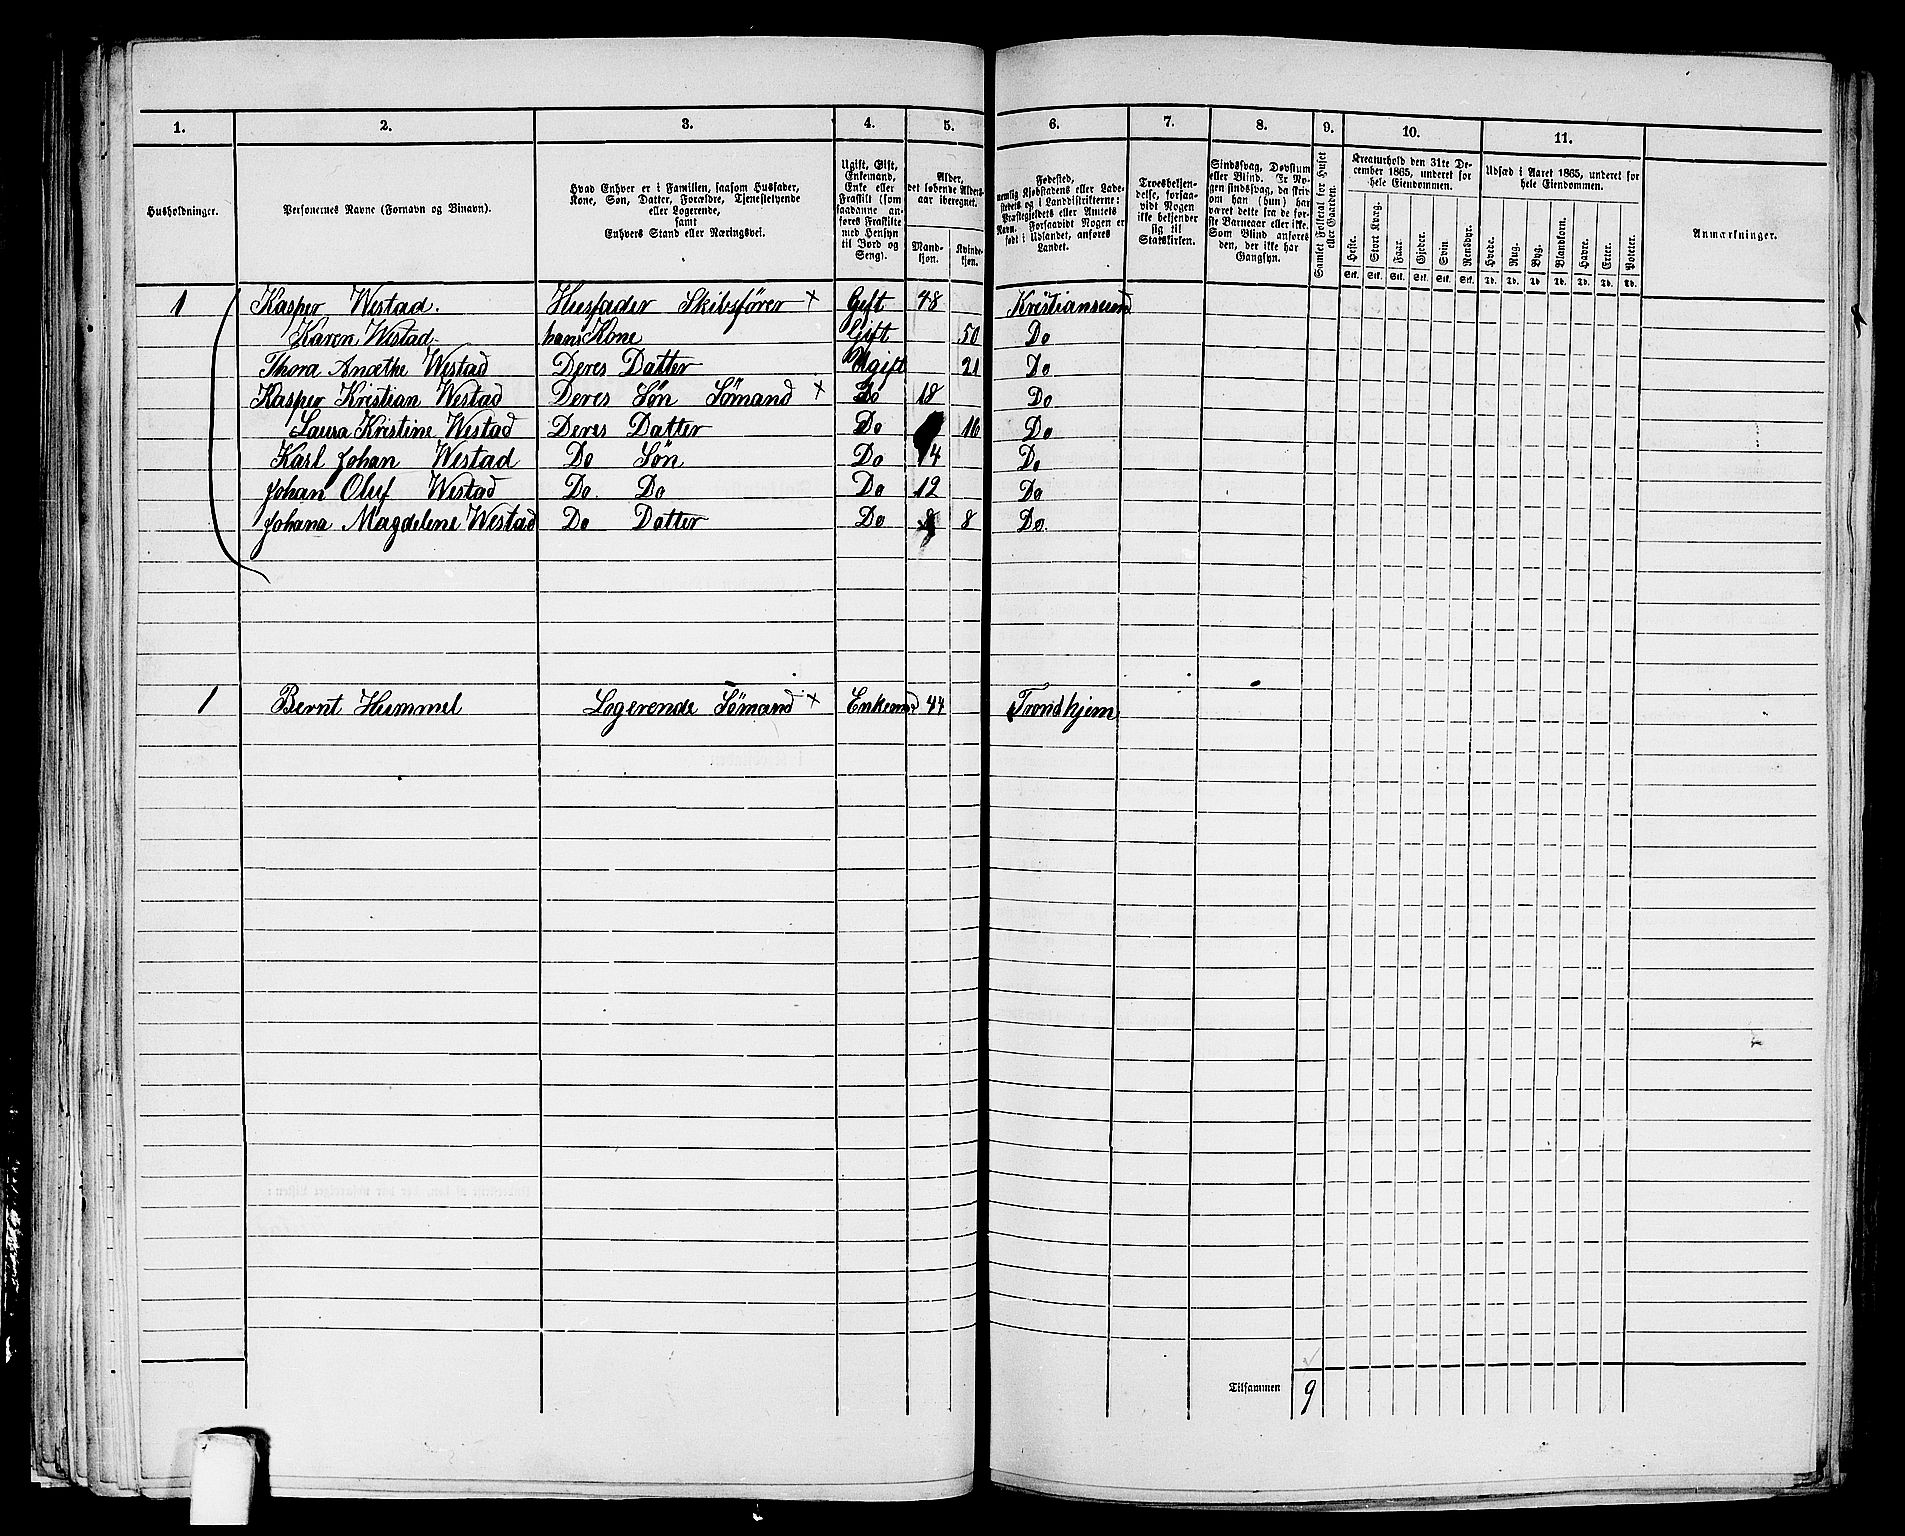 1. 2. 3. 4. 5. 6. 7. 8. 9. 10. 11.
Husholdninger.
Personernes Navne (Fornavn og Binavn).
Hvad Enhver er i Familien, saasom Husfader,
Kone, Søn, Datter, Forældre, Tjenestetyende
eller Logerende,
samt
Enhvers Stand eller Næringsvei.
Ugift, Gift,
Enkemand,
Enke eller
Fraskilt (som
saadanne an-
føres Fraskilte
med Hensyn
til Bord og
Seng).
Alder,
det løbende Alders-
aar iberegnet.
Mand-
kjøn.
Kvinde-
kjøn.
Fødested,
nemlig Kjøbstadens eller Lade-
stedets og i Landdistrikterne:
Præstegjeldets eller Amtets
Navn. Forsaavidt Nogen er
født i Udlandet, anføres
Landet.
Troesbekjen-
delse, forsaa-
vidt Nogen
ikke bekjender
sig til
Statskirken.
Sindssvag, Døvstum
eller Blind. Er No-
gen sindssvag, da skriv
om han (hun) har
været dette fra de før-
ste Barneaar eller ikke.
Som Blind anføres
den, der ikke har
Gangsyn.
Samlet Folketal for Huset
eller Gaarden.
Kreaturhold den 31te De-
cember 1865, underet for
hele Eiendommen.
Heste. Stort Kvæg. Faar. Gjeder. Svin Rensdyr.
Stk. Stk. Stk. Stk. Stk. Stk.
Udsæd i Aaret 1865, underet for
hele Eiendommen.
Hvede. Rug. Byg. Blandkorn. Havre. Erter. Poteter.
Td. Td. Td Td. Td. Td. Td.
Anmærkninger.
1 Kasper Westad. Husfader Skibsfører × Gift 48 Kristiansund
Karen Westad hans Kone Gift 50 Do
Thora Anethe Westad Deres Datter Ugift 21 Do
Kasper Kristian Westad Deres Søn Sømand × Do 18 Do
Laura Kristine Westad Deres Datter Do 16 Do
Karl Johan Westad Do Søn Do 14 Do
Johan Oluf Westad Do. Do Do 12 Do
Johana Magdelene Westad Do Datter Do 8 8 Do.
1 Bernt Hummel Logerende Sømand × Enkemd 44 Trondhjem
Tilsammen 9